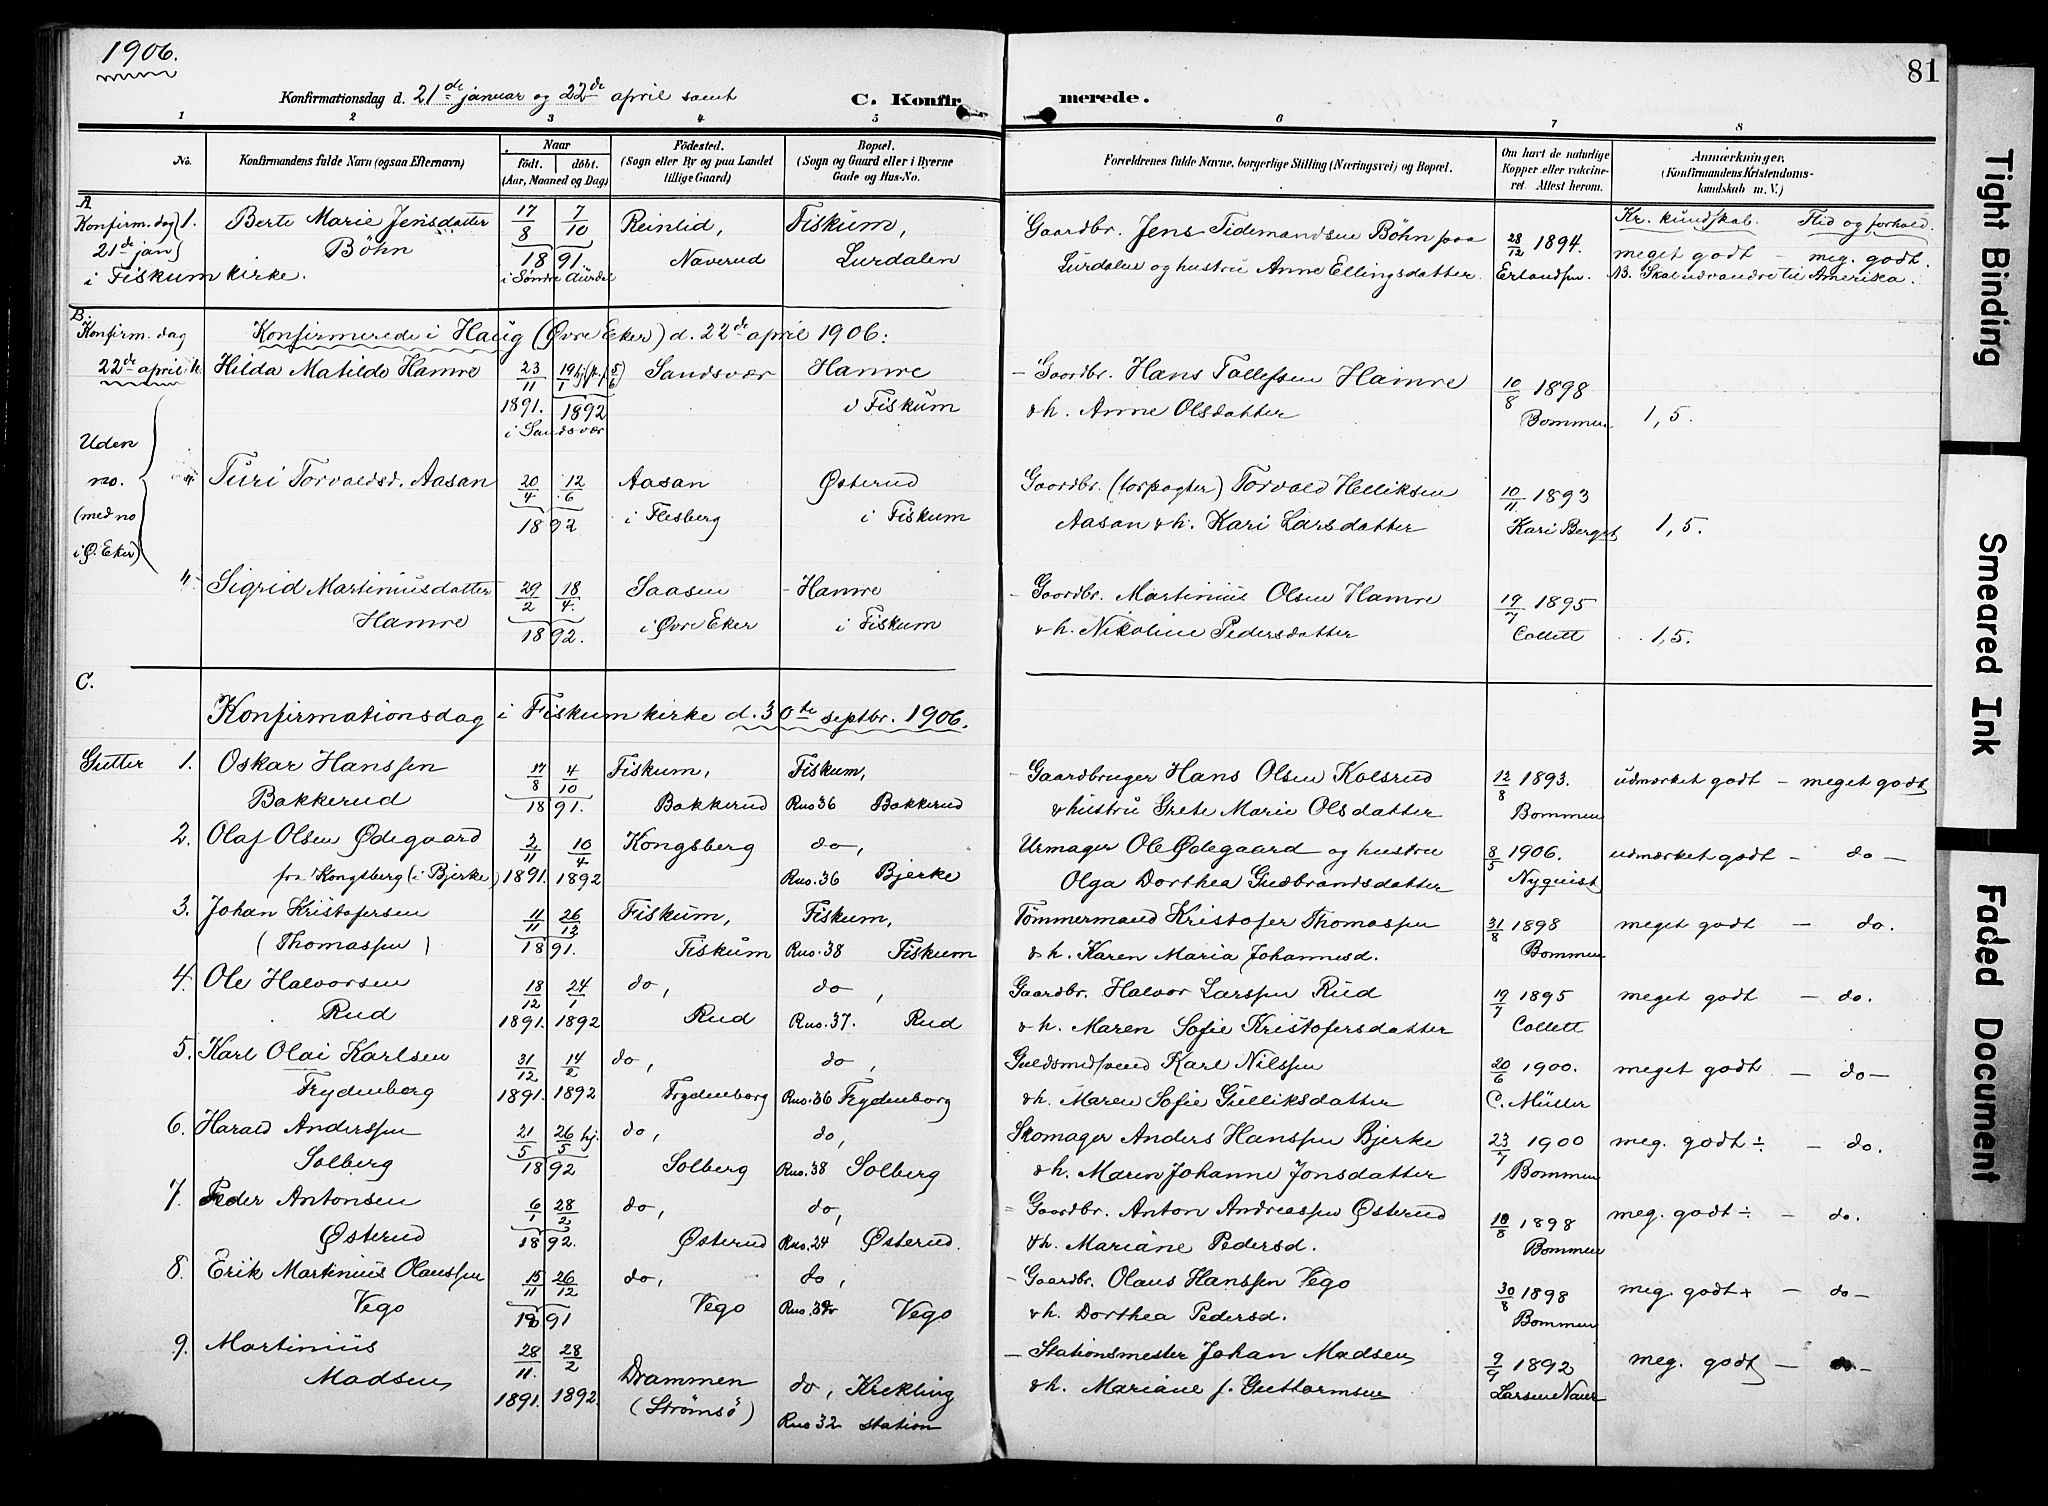 1906.
81
Konfirmationsdag d. 21de januar og 22de april samt
C. Konfirmerede.
1 2 3 4 5 6 7 8
No.
Konfirmandens fulde Navn (ogsaa Efternavn)
Naar
födt. döbt.
(Aar, Maaned og Dag)
Födested.
(Sogn eller By og paa Landet
tillige Gaard)
Bopæl.
(Sogn og Gaard eller i Byerne
Gade og Hus-No.
Forældrenes fulde Navne, borgerlige Stilling (Næringsvei) og Bopæl.
Om havt de naturlige
Kopper eller vaccineret.
Attest herom.
Anmærkninger.
(Konfirmandens Kristendomskundskab
m. V.)
Kr. kundskab. Flid og forhold.
A
Konfirm.dag 1. Berte Marie Jensdatter 17/8 7/10 Reinlid, Fiskum, Gaardbr. Jens Tidemandsen Bøhn paa 28/12 1894. meget godt – meg. godt.
21de jan Bøhn 1891. Naverud Lurdalen Lurdalen og hustru Anne Ellingsdatter Erlandsen. NB. Skal udvandre til Amerika.
i Fiskum kirke. i Søndre Aurdal
B.
Konfirm.dag Konfirmerede i Haug (Øvre Eker) d. 22de april 1906:
22de april Hilda Matilde Hamre 23/11 19/1 hj. (k. 5/6) Sandsvær Hamre – Gaardbr. Hans Tollefsen Hamre 10/8 1898
1891. 1892 i Fiskum & h. Anne Olsdatter Bommen 1,5.
i Sandsvær
Uden
no.
(med no
i Ø. Eker)
" Turi Torvaldsd. Aasan 20/4 12/6 Aasan Østerud Gaardbr. (forpagter) Torvald Helliksen 10/11 1893
1892 i Flesberg i Fiskum Aasan & h. Kari Larsdatter Kari Berget 1,5.
" Sigrid Martiniusdatter 29/2 18/4. Saasen – Hamre – Gaardbr. Martinius Olsen Hamre 19/7 1895
Hamre 1892. i Øvre Eker i Fiskum & h. Nikoline Pedersdatter Collett 1,5.
C.
Konfirmationsdag i Fiskum kirke d. 30te septbr. 1906.
Gutter 1. Oskar Hanssen 17/8 4/10 Fiskum, Fiskum, – Gaardbruger Hans Olsen Kolsrud 12/8 1893. udmærket godt – meget godt
Bakkerud 1891. Bakkerud Rus 36 Bakkerud & hustru Grete Marie Olsdatter Bommen
2. Olaf Olsen Ødegaard 2/11 10/4 Kongsberg do, Urmager Ole Ødegaard og hustru 8/5 1906. udmærket godt – do –
fra Kongsberg (i Bjerke) 1891. 1892 Rus. 36 Bjerke Olga Dorthea Gudbrandsdatter Nyquist
3. Johan Kristofersen 11/11 26/12 Fiskum, Fiskum, Tömmermand Kristofer Thomassen 31/8 1898 meget godt – do.
(Thomassen) 1891. Fiskum Rus. 38 Fiskum & h. Karen Maria Johannesd. Bommen
4. Ole Halvorsen 18/12 24/1 do, do, Gaardbr. Halvor Larssen Rud 19/7 1895 meget godt – do.
Rud 1891. 1892 Rud Rus. 37. Rud & h. Maren Sofie Kristofersdatter Collett
5. Karl Olai Karlsen 31/12 14/2 do, do, Guldsmedsvend Karl Nilssen 20/6 1900. meget godt – do –
Frydenborg 1891. 1892 Frydenborg Rus. 36 Frydenborg & h. Maren Sofie Gulliksdatter C. Müller
6. Harald Anderssen 21/5 26/5 hj. do, do, Skomager Anders Hanssen Bjerke 23/7 1900 meg. godt ÷ – do.
Solberg 1892 Solberg Rus. 38 Solberg & h. Maren Johanne Jonsdatter Bommen
7. Peder Antonsen 6/1 28/2 do, do, – Gaardbr. Anton Andreassen Østerud 18/8 1898 meg. godt ÷ – do.
Østerud 1892. Østerud Rus. 24 Østerud. & h. Mariane Pedersd. Bommen
8. Erik Martinius Olaussen 15/11 26/12 do, do, – Gaardbr. Olaus Hanssen Vego 30/8 1898 meg. godt + – do –
Vego 1891 Vego Rus. Vego & h. Dorthea Pedersd. Bommen
9. Martinius 28/11. 28/2 Drammen do, Krekling – Stationsmester Johan Madsen 9/9 1892 meg. godt – do –
Madsen 1891. 1892. (Strömsö) Rus 32 station & h. Mariane f. Guttormsen Larsen Naur
Tight Binding
Smeared Ink
Faded Document